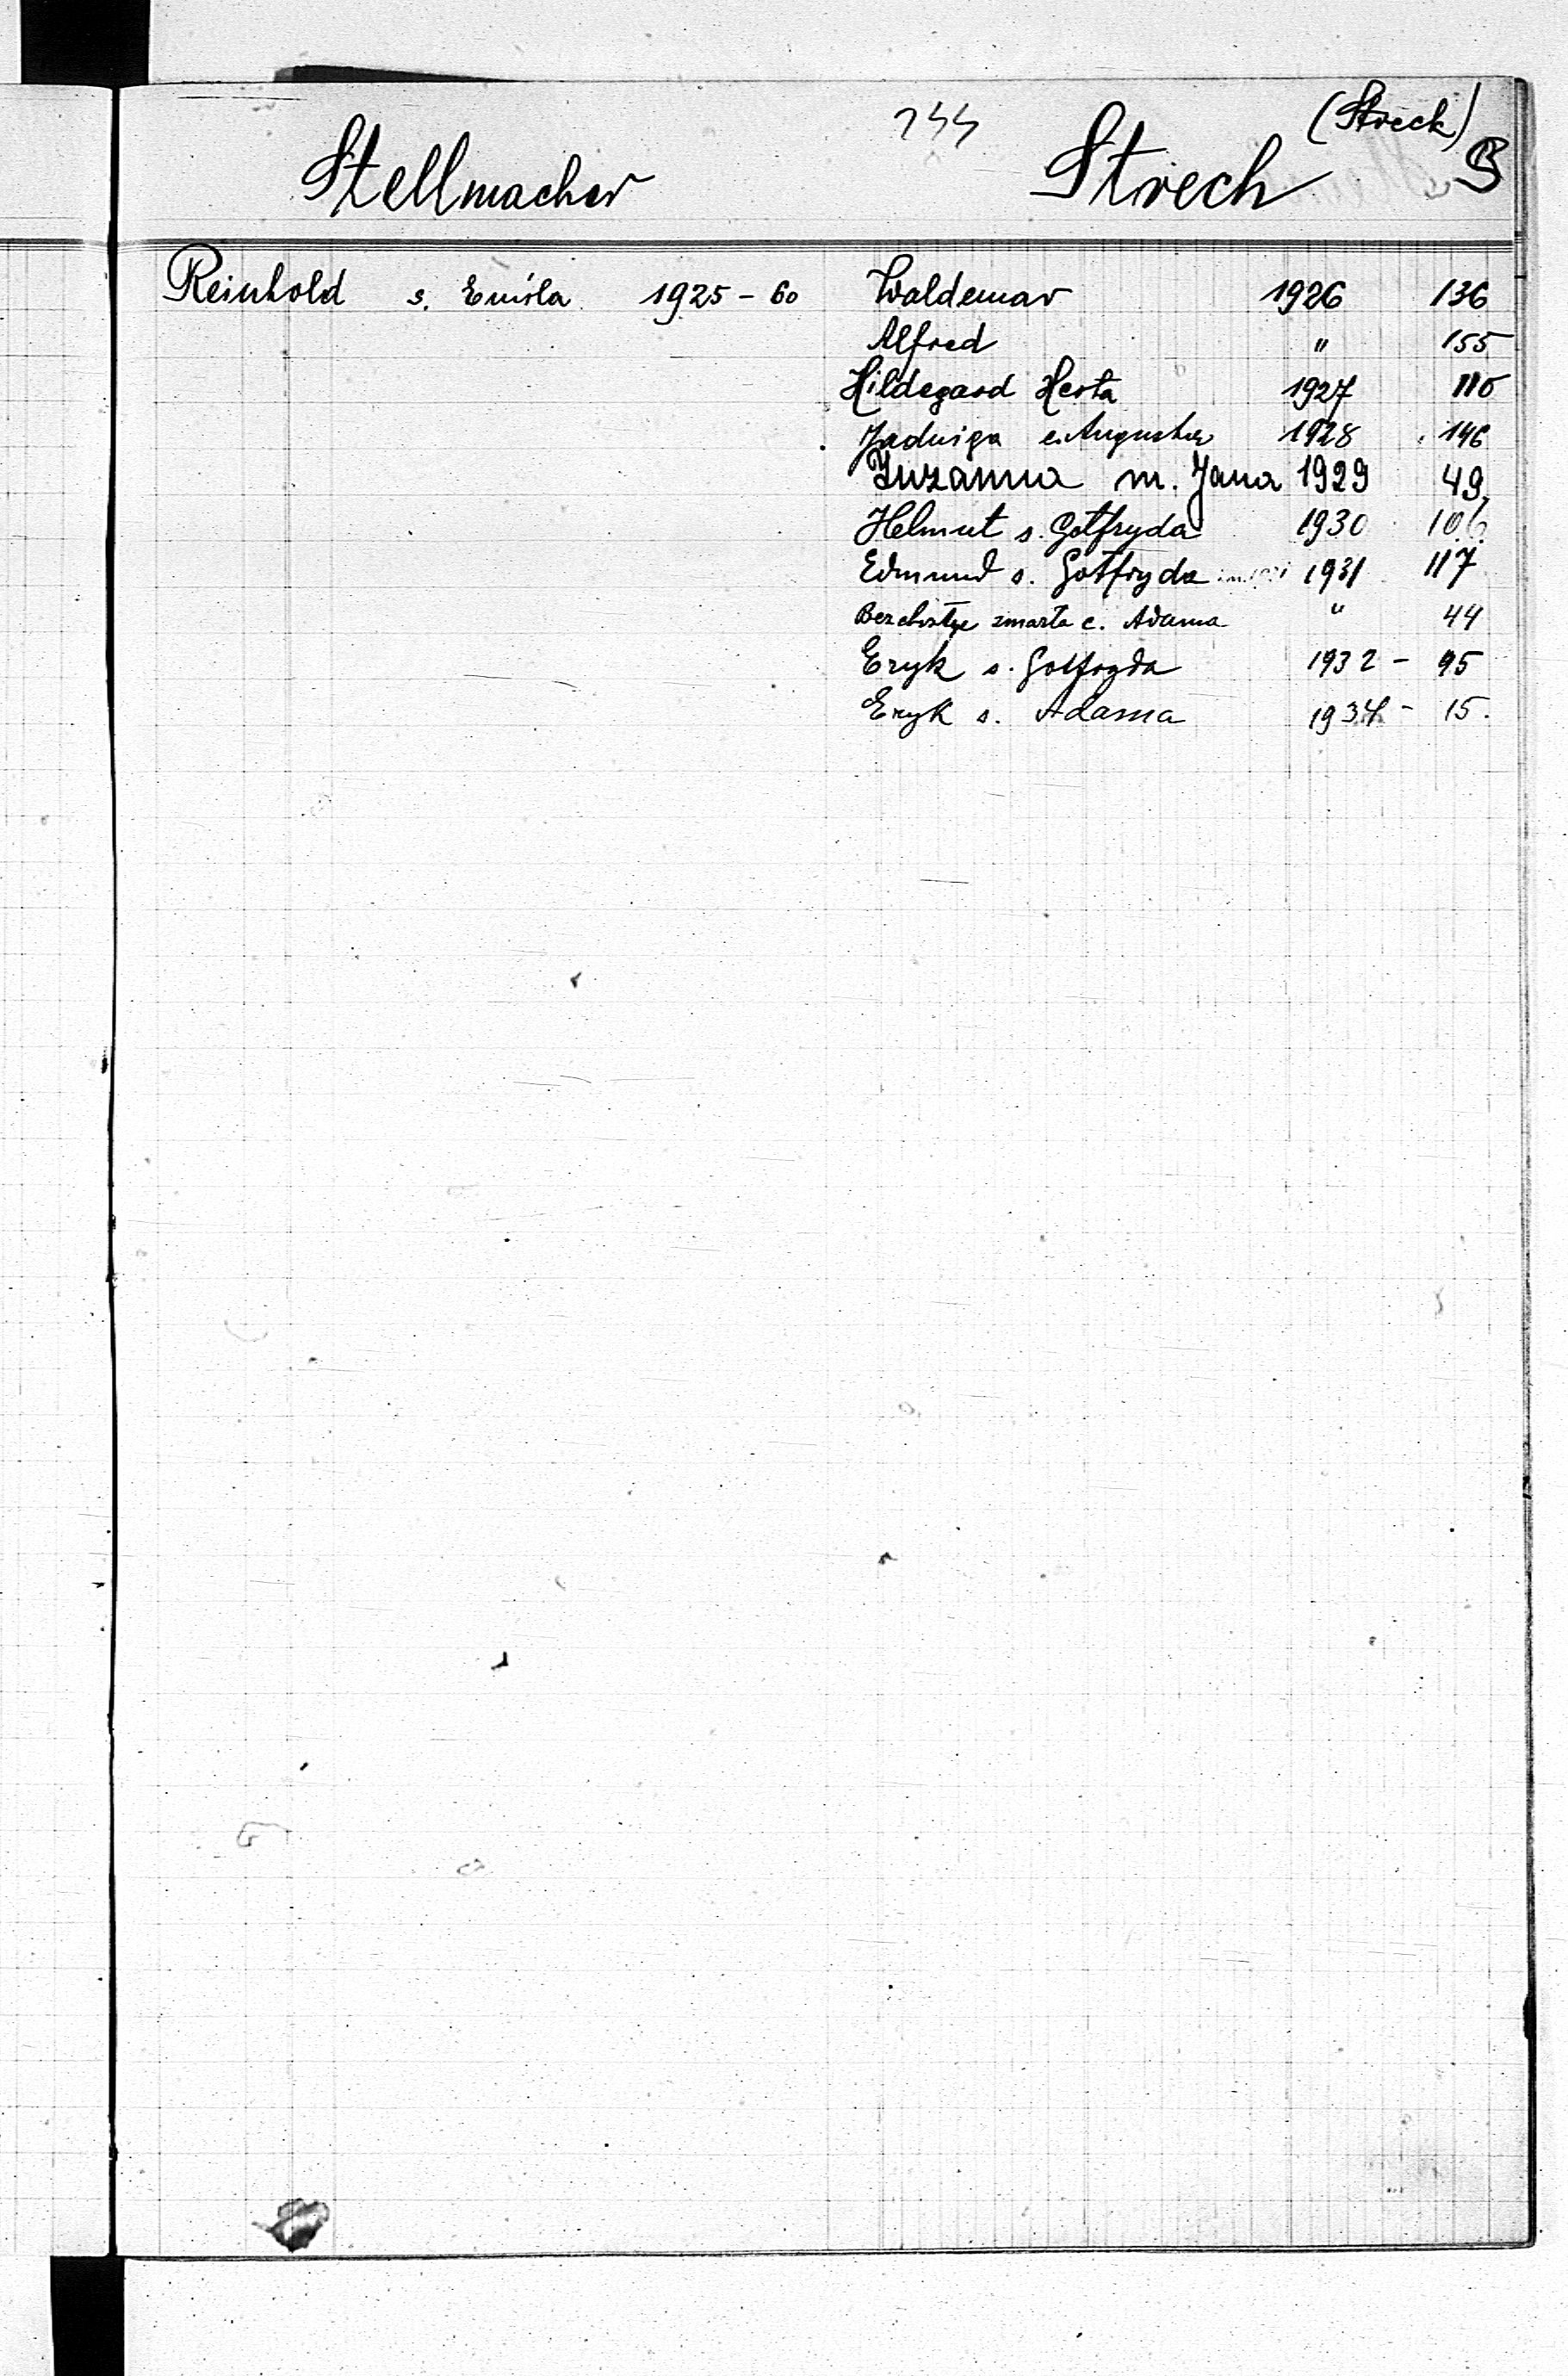 (Streck)
Stellmacher
Strech
Reinhold s. Emila 1925 - 60
Waldemar 1926 136
Alfred " 155
Hildegard Herta 1927 110
Jadwiga c. Augusta 1928 146
Zuzanna m. Jana 1929 49
Helmut s. Gotfryda 1930 106
Edmund s. Gotfryda 1931 117
Bezchrztu zmarła c. Adama " 44
Eryk s. Gotfryda 1932 - 95
Eryk s. Adama 1934 - 15.